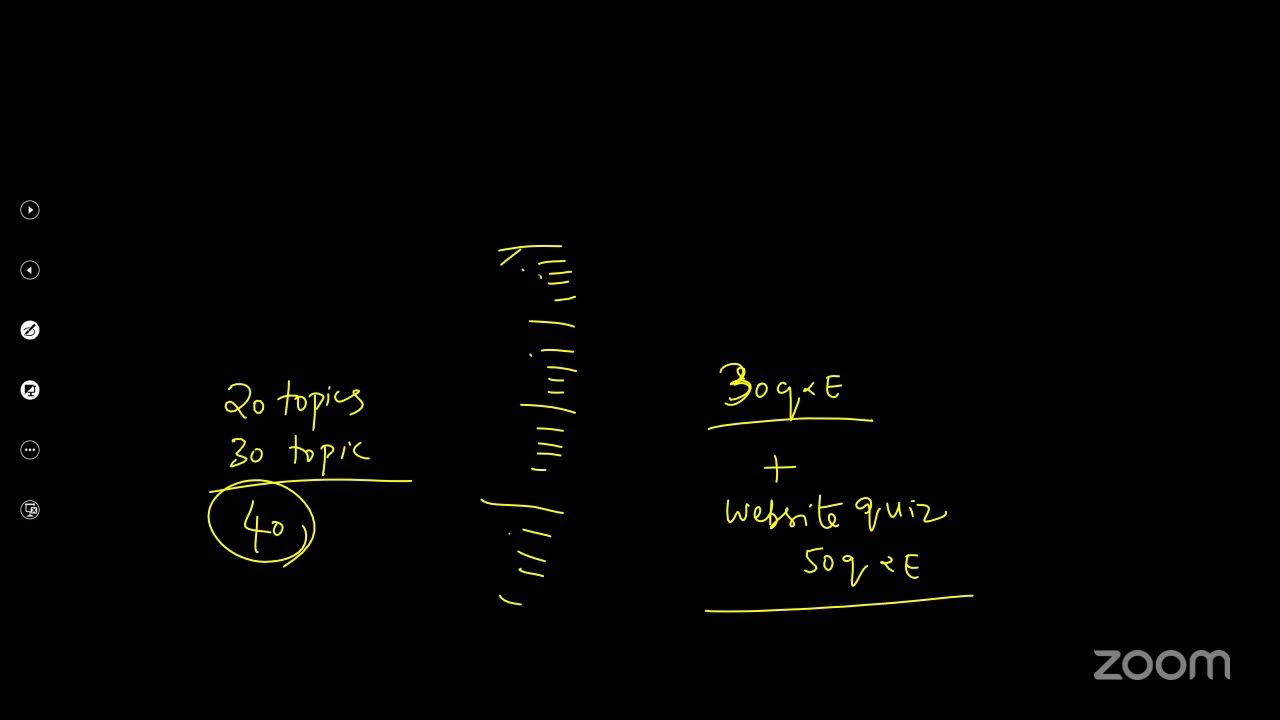 20 topics
30 topic
40
30q & E
+
website quiz
50q & E
zoom